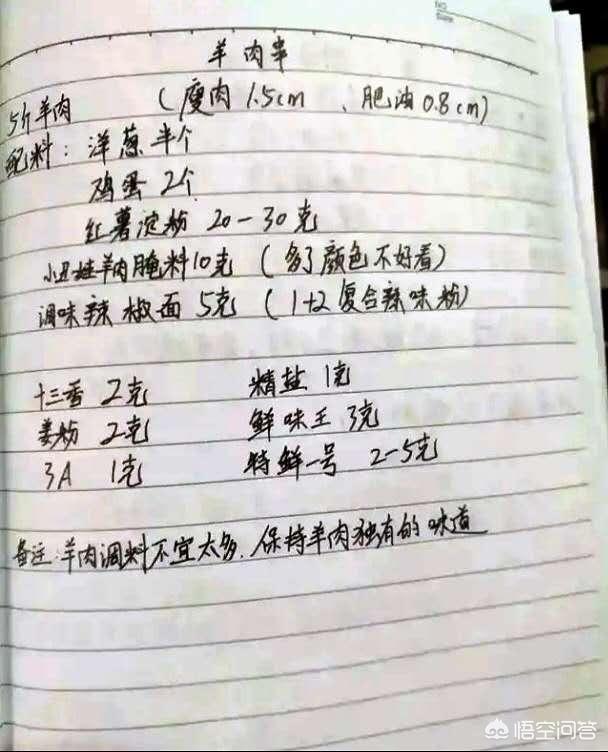 羊肉串
5斤羊肉 (瘦肉1.5cm、肥油0.8cm)
配料：洋葱半个
鸡蛋 2个
红薯淀粉 20-30克
小丑娃羊肉腌料10克 (多了颜色不好看)
调味辣椒面 5克 (1+2复合辣味粉)
十三香 2克 精盐 1克
姜粉 2克 鲜味王 3克
3A 1克 特鲜一号 2-5克
备注:羊肉调料不宜太多.保持羊肉独有的味道
悟空问答